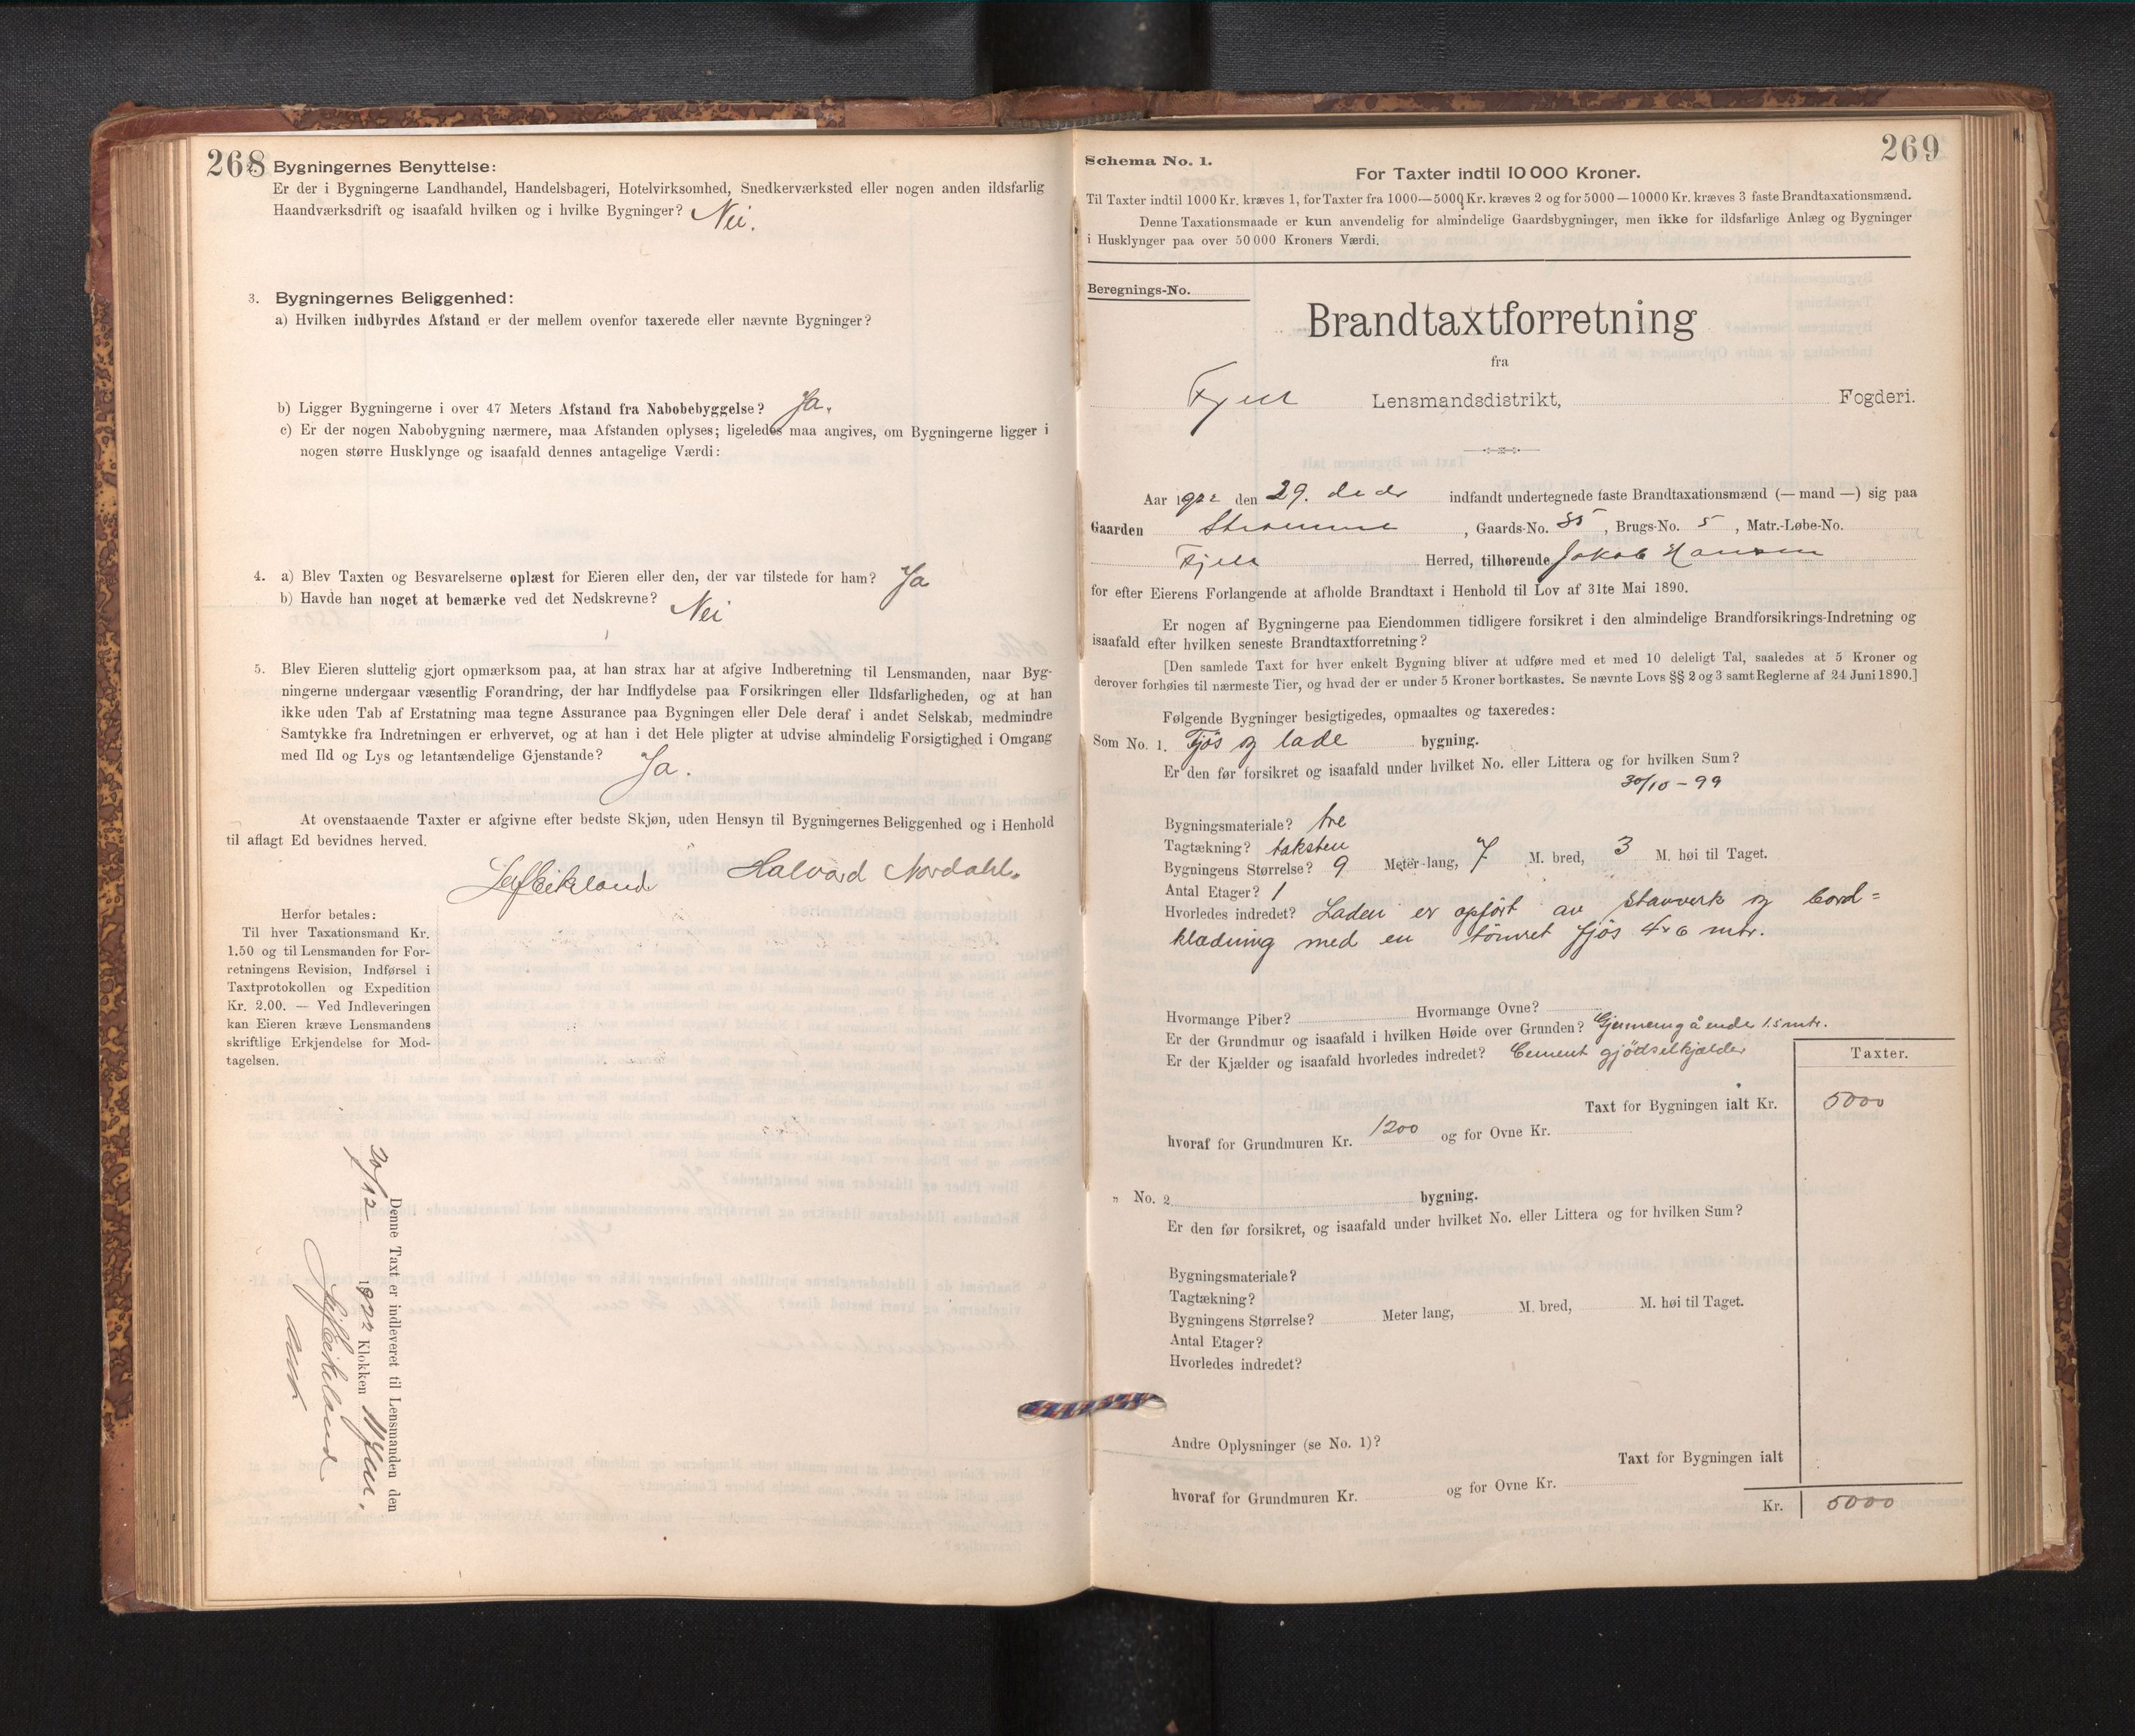 268
Bygningernes Benyttelse:
Er der i Bygningerne Landhandel, Handelsbageri, Hotelvirksomhed, Snedkerværksted eller nogen anden ildsfarlig
Haandværksdrift og isaafald hvilken og i hvilke Bygninger? Nei.
3. Bygningernes Beliggenhed:
a) Hvilken indbyrdes Afstand er der mellem ovenfor taxerede eller nævnte Bygninger?
b) Ligger Bygningerne i over 47 Meters Afstand fra Nabobebyggelse? Ja.
c) Er der nogen Nabobygning nærmere, maa Afstanden oplyses; ligeledes maa angives, om Bygningerne ligger i
nogen større Husklynge og isaafald dennes antagelige Værdi:
4. a) Blev Taxten og Besvarelserne oplæst for Eieren eller den, der var tilstede for ham? Ja
b) Havde han noget at bemærke ved det Nedskrevne? Nei
5. Blev Eieren sluttelig gjort opmærksom paa, at han strax har at afgive Indberetning til Lensmanden, naar Byg-
ningerne undergaar væsentlig Forandring, der har Indflydelse paa Forsikringen eller Ildsfarligheden, og at han
ikke uden Tab af Erstatning maa tegne Assurance paa Bygningen eller Dele deraf i andet Selskab, medmindre
Samtykke fra Indretningen er erhvervet, og at han i det Hele pligter at udvise almindelig Forsigtighed i Omgang
med Ild og Lys og letantændelige Gjenstande? Ja.
At ovenstaaende Taxter er afgivne efter bedste Skjøn, uden Hensyn til Bygningernes Beliggenhed og i Henhold
til aflagt Ed bevidnes herved.
Eikeland Halvard Nordahl.
Herfor betales:
Til hver Taxationsmand Kr.
1.50 og til Lensmanden for For-
retningens Revision, Indførsel i
Taxtprotokollen og Expedition
Kr. 2.00. — Ved Indleveringen
kan Eieren kræve Lensmandens
skriftlige Erkjendelse for Mod-
tagelsen.
Denne Taxt er indleveret til Lensmanden den
30/12 1922 Klokken 11 fm.
Eikeland
269
Schema No. 1.
For Taxter indtil 10 000 Kroner.
Til Taxter indtil 1000 Kr. kræves 1, for Taxter fra 1000—5000 Kr. kræves 2 og for 5000—10000 Kr. kræves 3 faste Brandtaxationsmænd.
Denne Taxationsmaade er kun anvendelig for almindelige Gaardsbygninger, men ikke for ildsfarlige Anlæg og Bygninger
i Husklynger paa over 50 000 Kroners Værdi.
Beregnings-No.
Brandtaxtforretning
fra
Fjell Lensmandsdistrikt, Fogderi.
Aar 1922 den 29. decbr indfandt undertegnede faste Brandtaxationsmænd (— mand —) sig paa
Gaarden Strømme, Gaards-No. 35, Brugs-No. 5, Matr.-Løbe-No.
Fjell Herred, tilhørende Jakob Hansen
for efter Eierens Forlangende at afholde Brandtaxt i Henhold til Lov af 31te Mai 1890.
Er nogen af Bygningerne paa Eiendommen tidligere forsikret i den almindelige Brandforsikrings-Indretning og
isaafald efter hvilken seneste Brandtaxtforretning?
[Den samlede Taxt for hver enkelt Bygning bliver at udføre med et med 10 deleligt Tal, saaledes at 5 Kroner og
derover forhøies til nærmeste Tier, og hvad der er under 5 Kroner bortkastes. Se nævnte Lovs §§ 2 og 3 samt Reglerne af 24 Juni 1890.]
Følgende Bygninger besigtigedes, opmaaltes og taxeredes:
Som No. 1. Fjøs og lade bygning.
Er den før forsikret og isaafald under hvilket No. eller Littera og for hvilken Sum?
30/10 - 99
Bygningsmateriale? tre
Tagtækning? taksten
Bygningens Størrelse? 9 Meter lang, 7 M. bred, 3 M. høi til Taget.
Antal Etager? 1
Hvorledes indredet? Laden er opført av stavverk og bord=
klædning med en tømret fjøs 4x6 mtr.
Hvormange Piber? Hvormange Ovne?
Er der Grundmur og isaafald i hvilken Høide over Grunden? Gjennemgående 1.5 mtr.
Er der Kjælder og isaafald hvorledes indredet? Cement gjødselkjælder
Taxter.
Taxt for Bygningen ialt Kr. 5000
hvoraf for Grundmuren Kr. 1200 og for Ovne Kr.
" No. 2 bygning.
Er den før forsikret, og isaafald under hvilket No. eller Littera og for hvilken Sum?
Bygningsmateriale?
Tagtækning?
Bygningens Størrelse? Meter lang, M. bred, M. høi til Taget.
Antal Etager?
Hvorledes indredet?
Andre Oplysninger (se No. 1)?
Taxt for Bygningen ialt
hvoraf for Grundmuren Kr. og for Ovne Kr.
Kr. 5000